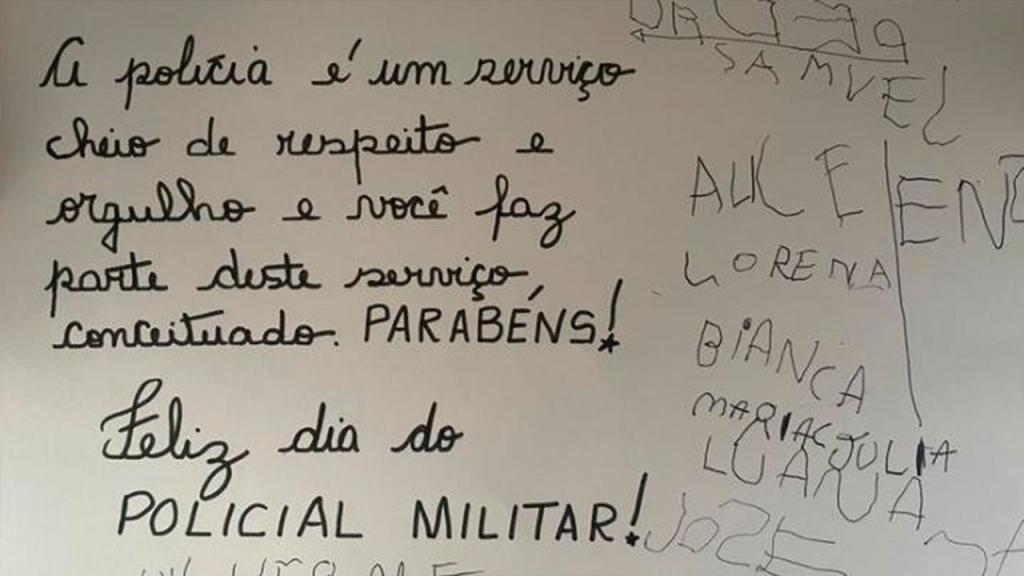 A polícia é um serviço
cheio de respeito e
orgulho e você faz
parte deste serviço,
conceituado. PARABÉNS!
Feliz dia do
POLICIAL MILITAR!
SAMUEL
ALICE
LORENA
BIANCA
MARIA JULIA
LUANA
JOZE